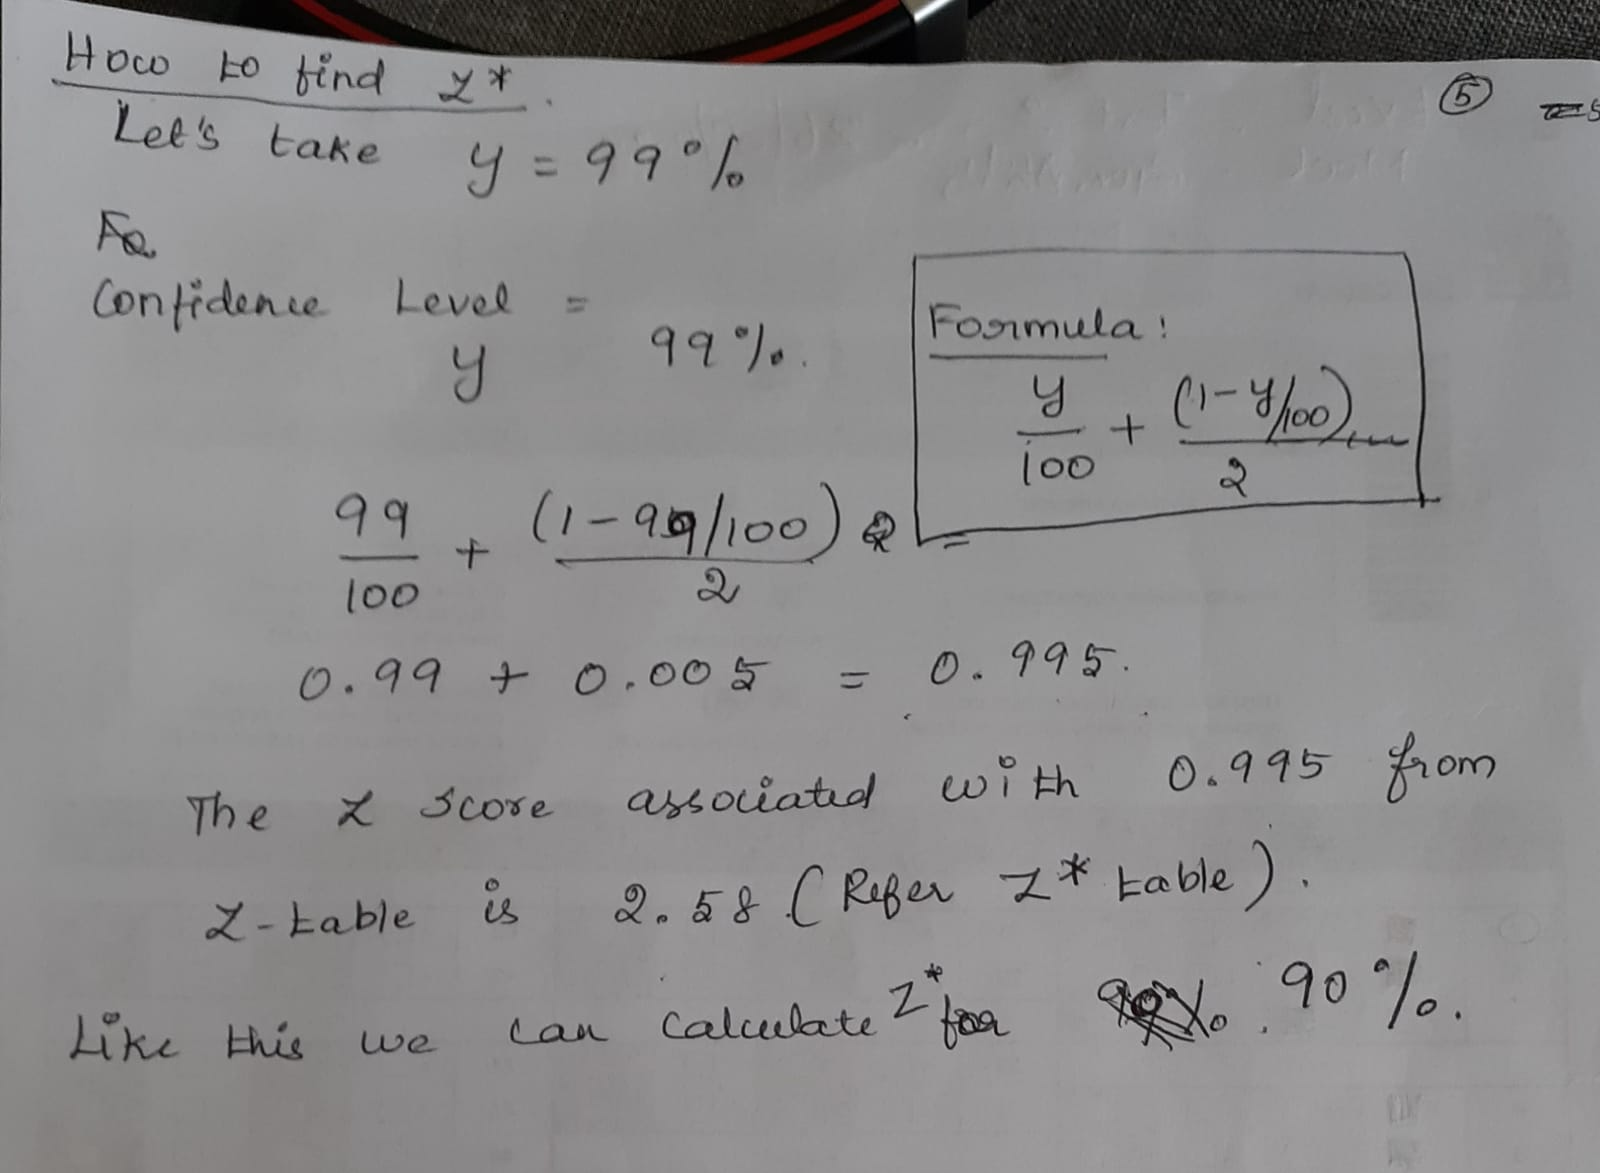 How to find Z*.
5
Let's take y = 99%
Confidence Level =
y 99%.
Formula:
y/100 + (1-y/100)/2
99/100 + (1-99/100)/2 =
0.99 + 0.005 = 0.995.
The Z score associated with 0.995 from
Z-table is 2.58 (Refer Z* table).
Like this we can calculate Z* for 90%.